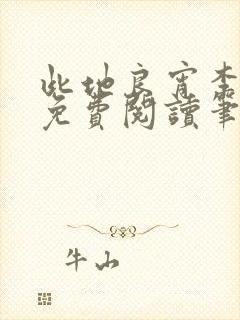 此地良宵
免費閱讀筆
牛山